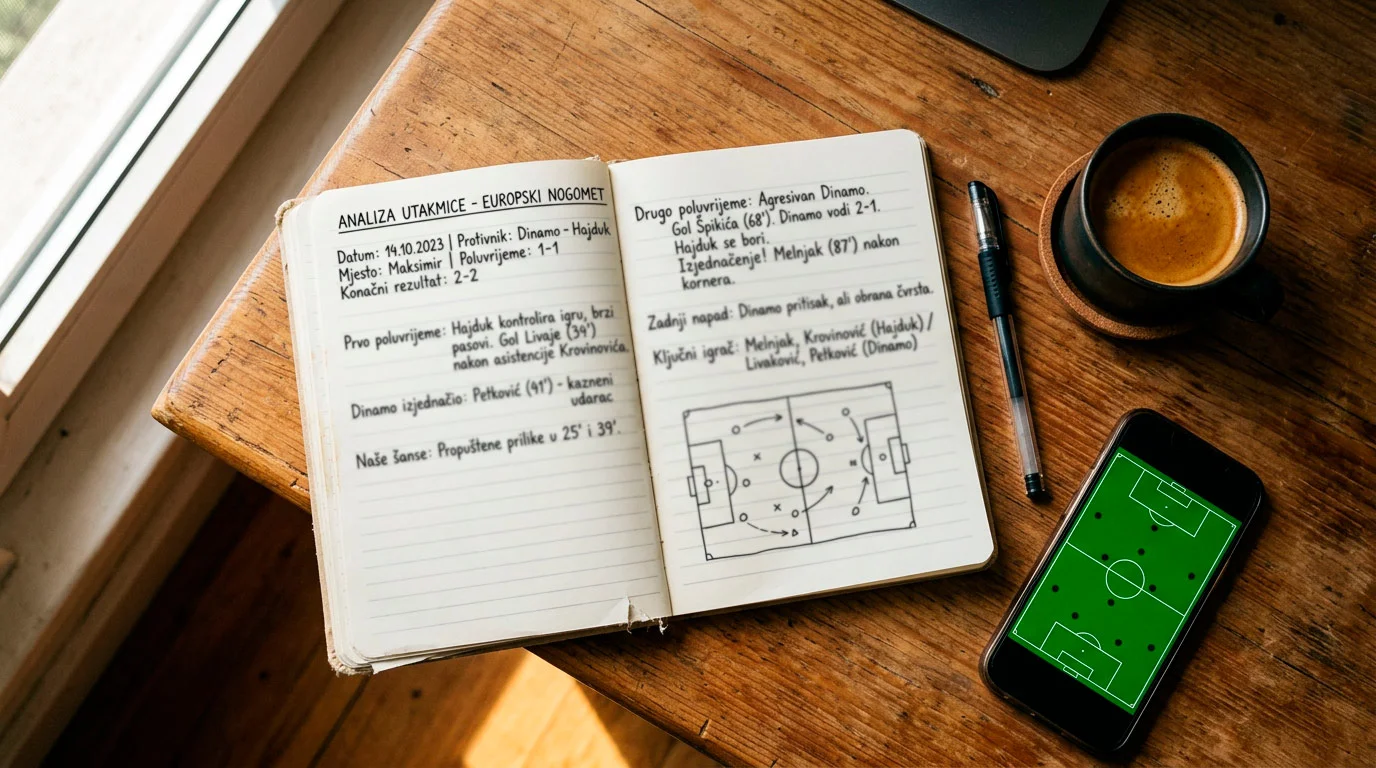 ANALIZA UTAKMICE – EUROPSKI NOGOMET
Datum: 14.10.2023 | Protivnik: Dinamo – Hajduk
Mjesto: Maksimir | Poluvrijeme: 1-1
Konačni rezultat: 2-2
Prvo poluvrijeme: Hajduk kontrolira igru, brzi
pasovi. Gol Livaje (34')
nakon asistencije Krovinovića.
Dinamo izjednačio: Petković (41') – kazneni
udarac
Naše šanse: Propuštene prilike u 25' i 39'.
Drugo poluvrijeme: Agresivan Dinamo.
Gol Špikića (68'). Dinamo vodi 2-1.
Hajduk se bori.
Izjednačenje! Melnjak (87') nakon
kornera.
Zadnji napad: Dinamo pritisak, ali obrana čvrsta.
Ključni igrač: Melnjak, Krovinović (Hajduk) /
Livaković, Petković (Dinamo)